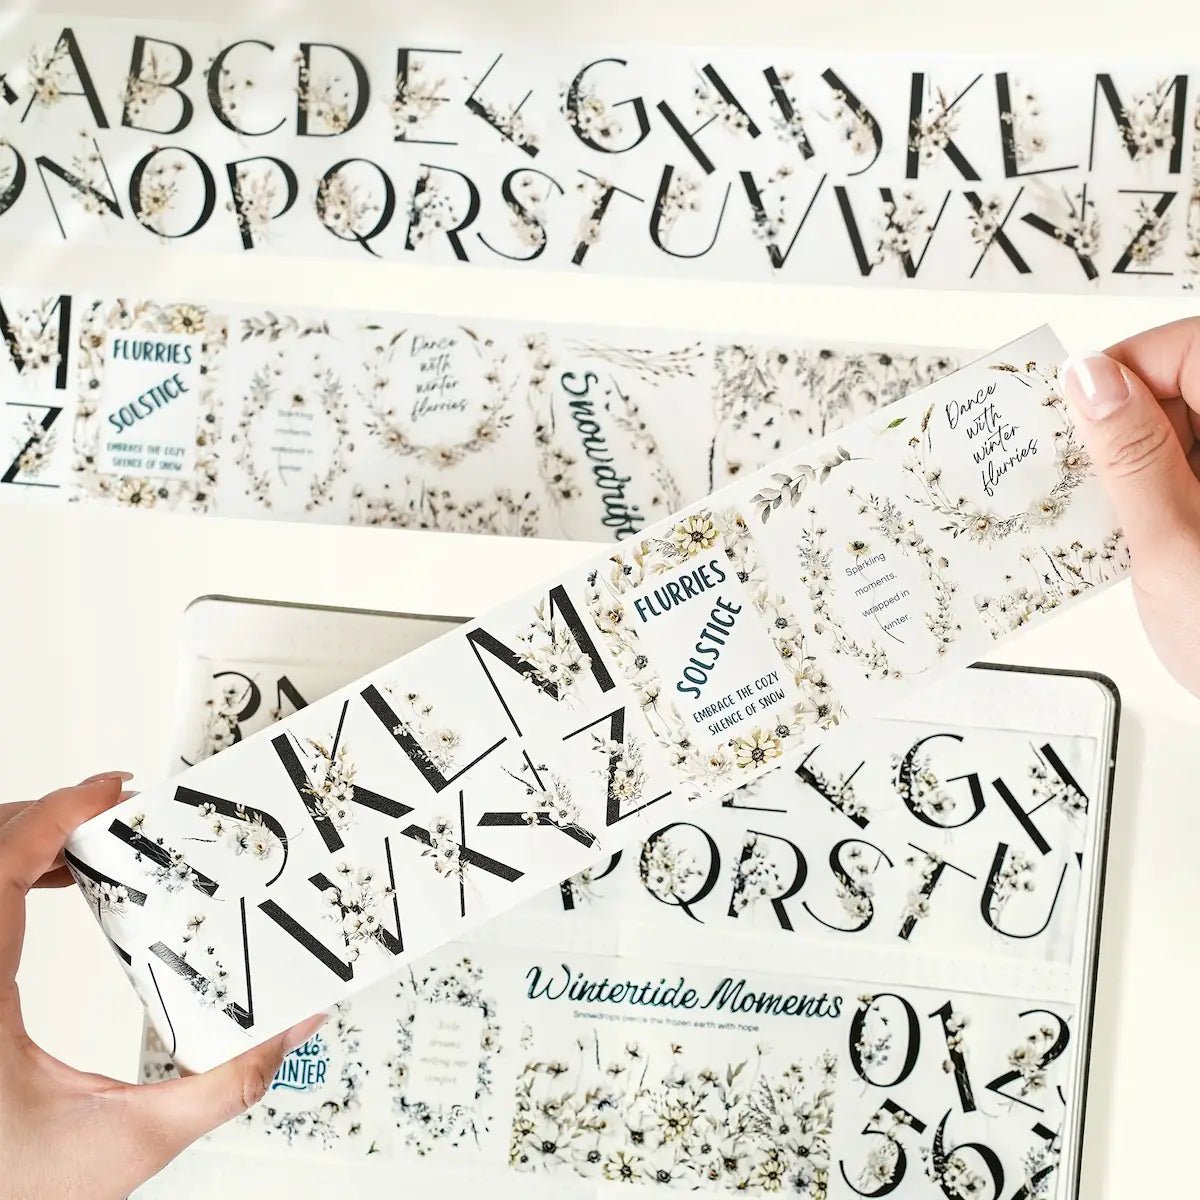 A B C D E F G H I J K L M
N O P Q R S T U V W X Y Z
M
Z
FLURRIES
SOLSTICE
EMBRACE THE COZY
SILENCE OF SNOW
Sparkling
moments,
wrapped in
winter.
Dance
with
winter
flurries
Snowdrift
I J K L M
V W X Y Z
FLURRIES
SOLSTICE
EMBRACE THE COZY
SILENCE OF SNOW
Sparkling
moments,
wrapped in
winter.
Dance
with
winter
flurries
E F G H
P Q R S T U
Wintertide Moments
Snowdrops pierce the frozen earth with hope
0 1 2
5 6
WINTER